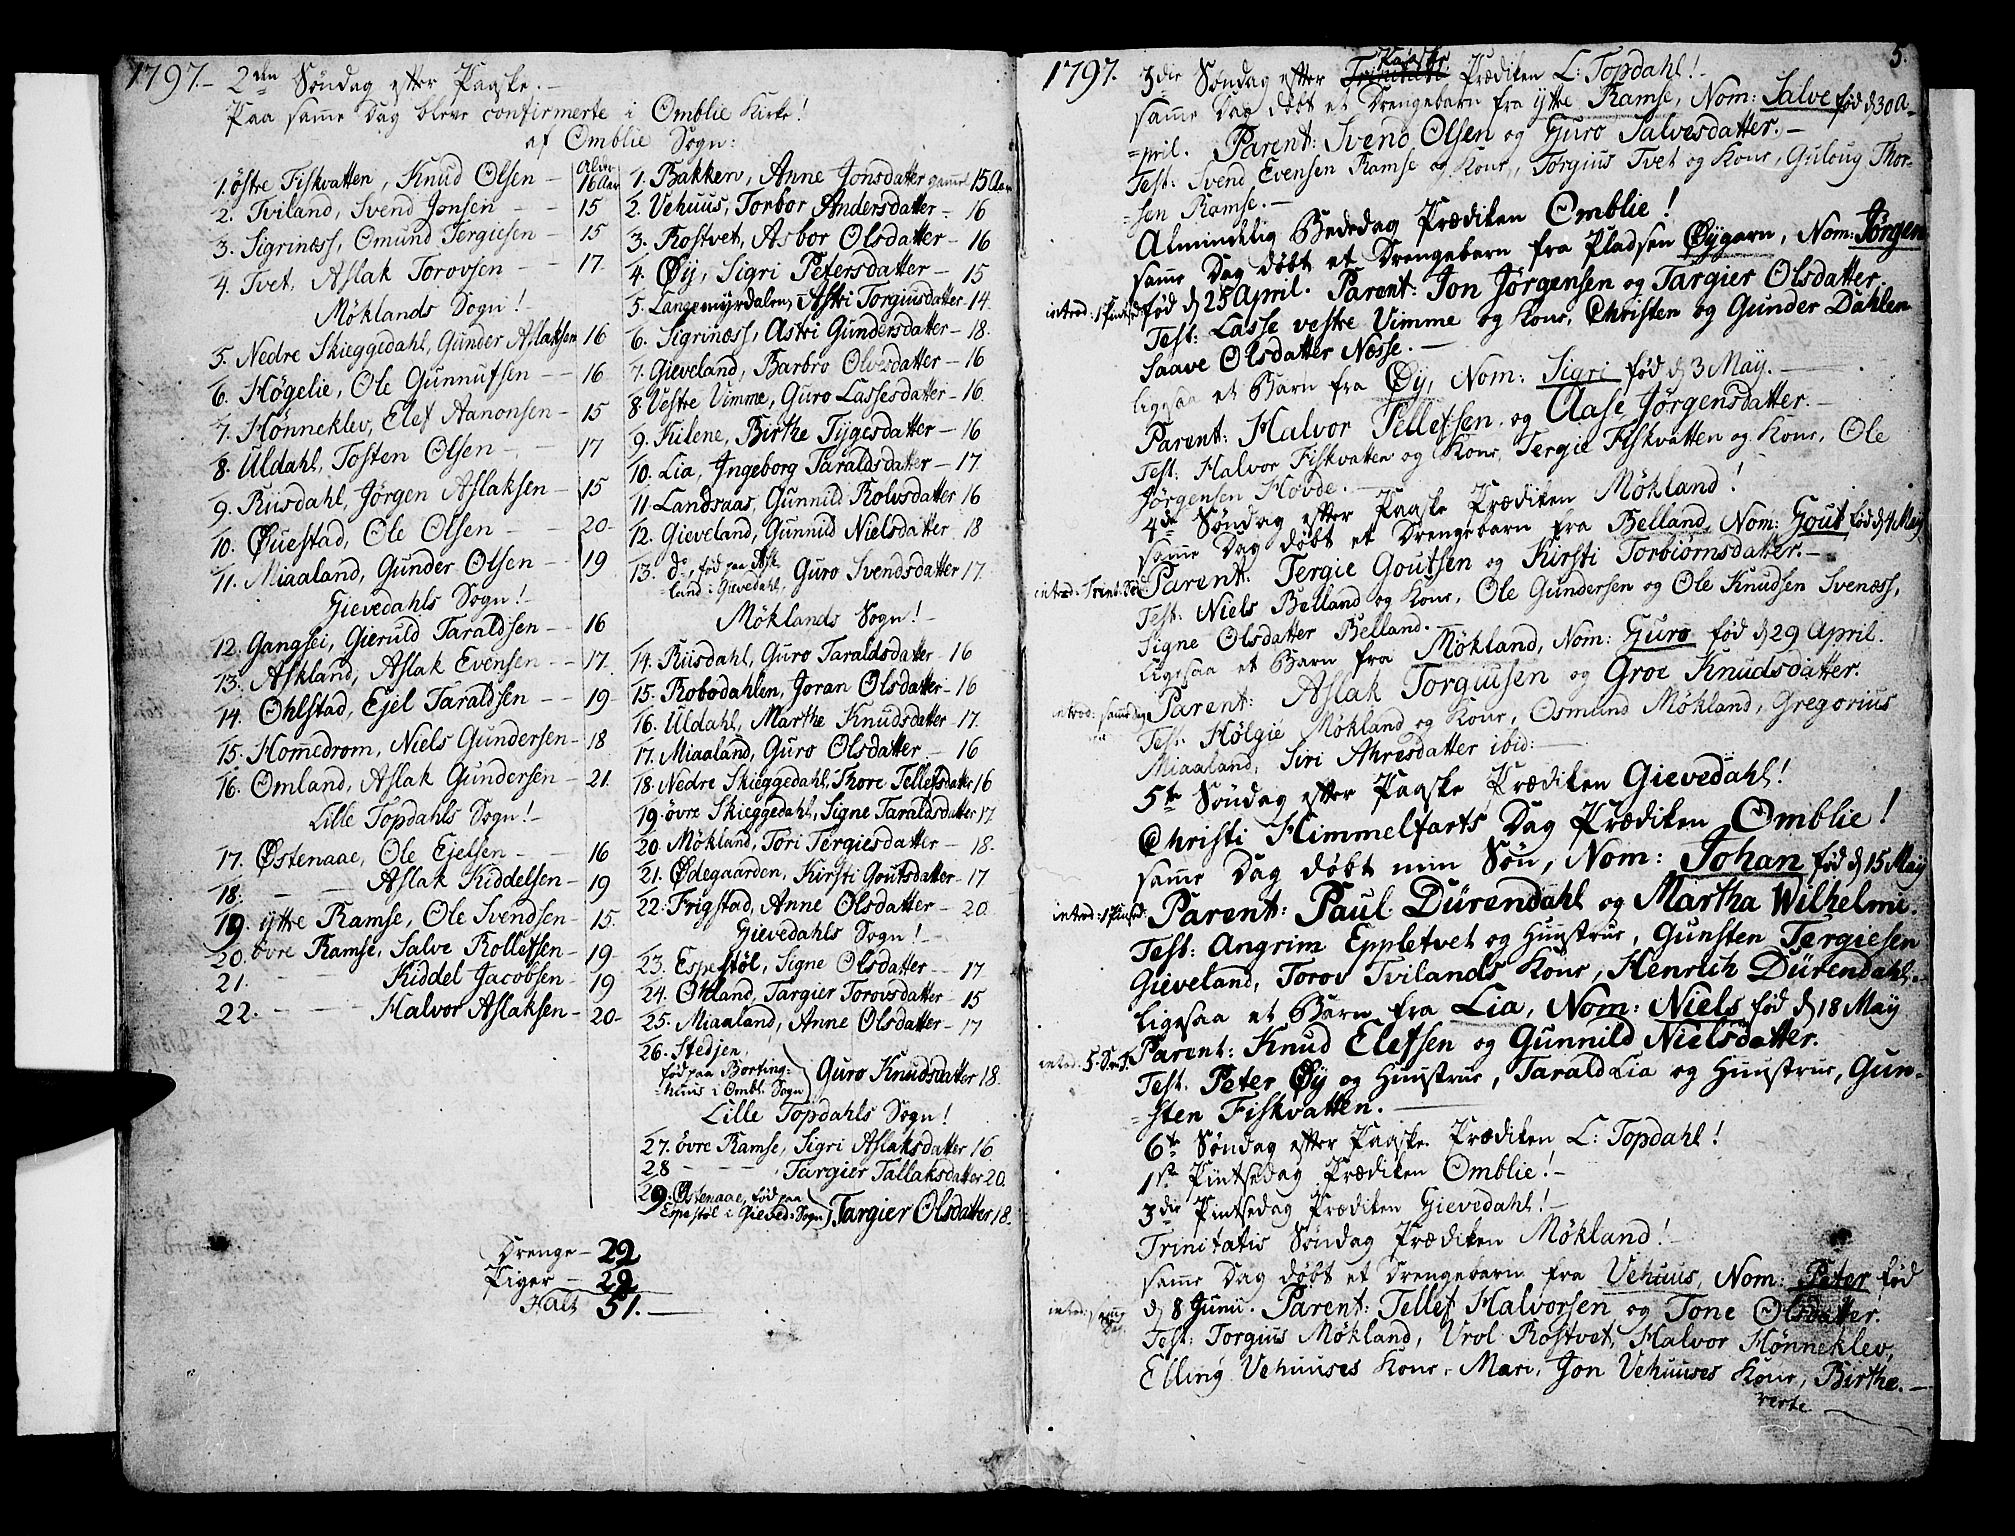 1797.- 2den Søndag efter Paaske.-
Paa samme Dag bleve confirmerte i Omblie Kirke!
af Omblie Sogn:
Alder
1. østre Fiskvatten, Knud Olsen - 16 Aar
2. Tviland, Svend Jonsen - - 15
3. Sigrinæss, Omund Tergiesen - 15
4. Tvet, Aslak Torovsen - - 17.
Møklands Sogn!-
5. Nedre Skieggedahl, Gunder Aslaksen 16
6. Høgelie, Ole Gunnufsen - - 16
7. Hønneklev, Elef Aanonsen - 15
8. Uldahl, Tosten Olsen - - 17
9. Riisdahl, Jørgen Aslaksen - 15
10. Øvestad, Ole Olsen - - 20-
11. Miaaland, Gunder Olsen - - 19
Gievedahls Sogn!-
12. Gangsei, Gieruld Taraldsen - - 16
13. Askland, Aslak Evensen - - 17.
14. Ohlstad, Ejel Taraldsen - - 19
15. Homedrom, Niels Gundersen - 18
16. Omland, Aslak Gundersen - 21.
Lille Topdahls Sogn!-
17. Østenaae, Ole Ejelsen - - 16
18. - - Aslak Kiddelsen - 19
19. yttre Ramse, Ole Svendsen - 15.
20. øvre Ramse, Salve Rollefsen - 19-
21. Kiddel Jacobsen - 19
22. - - - Halvor Aslaksen - 20-
1. Bakken, Anne Jonsdatter gamel 15 Aar
2. Vehuus, Torbor Andersdatter - 16
3. Rostvet, Asbor Olsdatter - 16
4. Øij, Sigri Petersdatter - 15
5. Langemyrdalen, Astri Torgiusdatter 14.
6. Sigrinæss, Astri Gundersdatter - 18.
7. Gieveland, Barbro Olvesdatter - 16
8. Vestre Vimme, Guro Lassesdatter - 16.
9. Kilene, Birthe Tygesdatter - 16
10. Lia, Ingeborg Taraldsdatter - 17.
11. Landsaas, Gunnild Rolvsdatter 16
12. Gieveland, Gunnild Nielsdatter - 18
13. do, fød paa Ask-
=land i Gievedahl, Guro Svendsdatter 17.
Møklands Sogn!-
14. Riisdahl, Guro Taraldsdatter - 16
15. Robodahlen, Joran Olsdatter - 16
16. Uldahl, Marthe Knudsdatter - 17.
17. Miaaland, Guro Olsdatter - 16
18. Nedre Skieggedahl, Thore Tellefsdatter 16
19. øvre Skieggedahl, Signe Taraldsdatter 17
20. Møkland, Tori Tergiesdatter - 18.
21. Ødegaarden, Kirsti Goutsdatter - 17
22. Frigstad, Anne Olsdatter - 20.
Gievedahls Sogn!-
23. Espestøl, Signe Olsdatter - - 17
24. Okland, Targier Torovsdatter - 15
25. Miaaland, Anne Olsdatter - 17
26. Stedjen,
fød paa Borting=
=huus i Ombl. Sogn) Guro Knudsdatter 18.
Lille Topdahls Sogn!
27. øvre Ramse, Sigri Aslaksdatter 16
28 - - - , Targier Tallaksdatter 20.
29. Østenaae, fød paa
Espestøl i Gieved: Sogn) Targier Olsdatter 18.
Drenge - 22
Piger - 29
Hals 51.-
5.
1797. 3die Søndag efter Paaske Prædiken L: Topdahl!-
samme Dag døbt et Drengebarn fra yttre Ramse, Nom: Salve fød d 30 A-
=pril. Parent: Svend Olsen og Guro Salvesdatter.-
Test: Svend Evensen Ramse og Kone, Torgius Tvet og Kone, Guloug Thor-
=sen Ramse.-
Almindelig Bededag Prædiken Omblie!
samme Dag døbt et Drengebarn fra Pladsen Øygarn, Nom: Jørgen
introd: 1 Pintsed: fød d 25 April. Parent: Jon Jørgensen og Targier Olsdatter.
Test: Lasse vestre Vimme og Kone, Christen og Gunder Dahlen
Saave Olsdatter Næsse.-
ligesaa et Barn fra Øij, Nom: Sigri fød d 3 May.-
Parent: Halvor Tellefsen og Aase Jørgensdatter.-
Test: Halvor Fiskvatten og Kone, Tergie Fiskvatten og Kone, Ole
Jørgensen Hovde.-
4de Søndag efter Paaske Prædiken Møkland!
samme Dag døbt et Drengebarn fra Belland, Nom: Gout fød d 4 May
introd: Trint: Søn: Parent: Tergie Goutsen og Kirsti Torbiørnsdatter.-
Test: Niels Belland og Kone, Ole Gundersen og Ole Knudsen Svenæss,
Signe Olsdatter Belland.-
ligesaa et Barn fra Møkland, Nom: Guro fød d 29 April.
introd: samme dag Parent: Aslak Torgiusen og Groe Knudsdatter.
Test: Hølgie Møkland og Kone, Osmund Møkland, Gregorius
Miaaland, Siri Ahresdatter ibid:-
5te Søndag efter Paaske Prædiken Gievedahl!
Christi Himmelfarts Dag Prædiken Omblie!
samme Dag døbt min Søn, Nom: Johan fød d 15 May
introd: 1 Pintsed: Parent: Paul Dürendahl og Martha Wilhelmi.
Test: Angrim Eppletvet og Huustrue, Gunsten Tergiesen
Gieveland, Torov Tvilands Kone, Henrich Dürendahl.-
ligesaa et Barn fra Lia, Nom: Niels fød d 18 May
introd: 5. S. e. T. Parent: Knud Elefsen og Gunnild Nielsdatter.
Test. Peter Øy og Huustrue, Tarald Lia og Huustrue, Gun-
=sten Fiskvatten.-
6te Søndag efter Paaske Prædiken L: Topdahl!
1ste Pintsedag Prædiken Omblie!-
3die Pintsedag Prædiken Gievedahl!-
Trinitatis Søndag Prædiken Møkland!-
samme Dag døbt et Drengebarn fra Vehuus, Nom: Peter fød
introd: samme Dag d 8 Junii. Parent: Tellef Halvorsen og Tone Olsdatter.
Test: Torgius Møkland, Vrol Rostvet, Halvor Hønneklev,
Elling Vehuuses Kone, Mari, Jon Vehuuses Kone, Birthe.-
verte